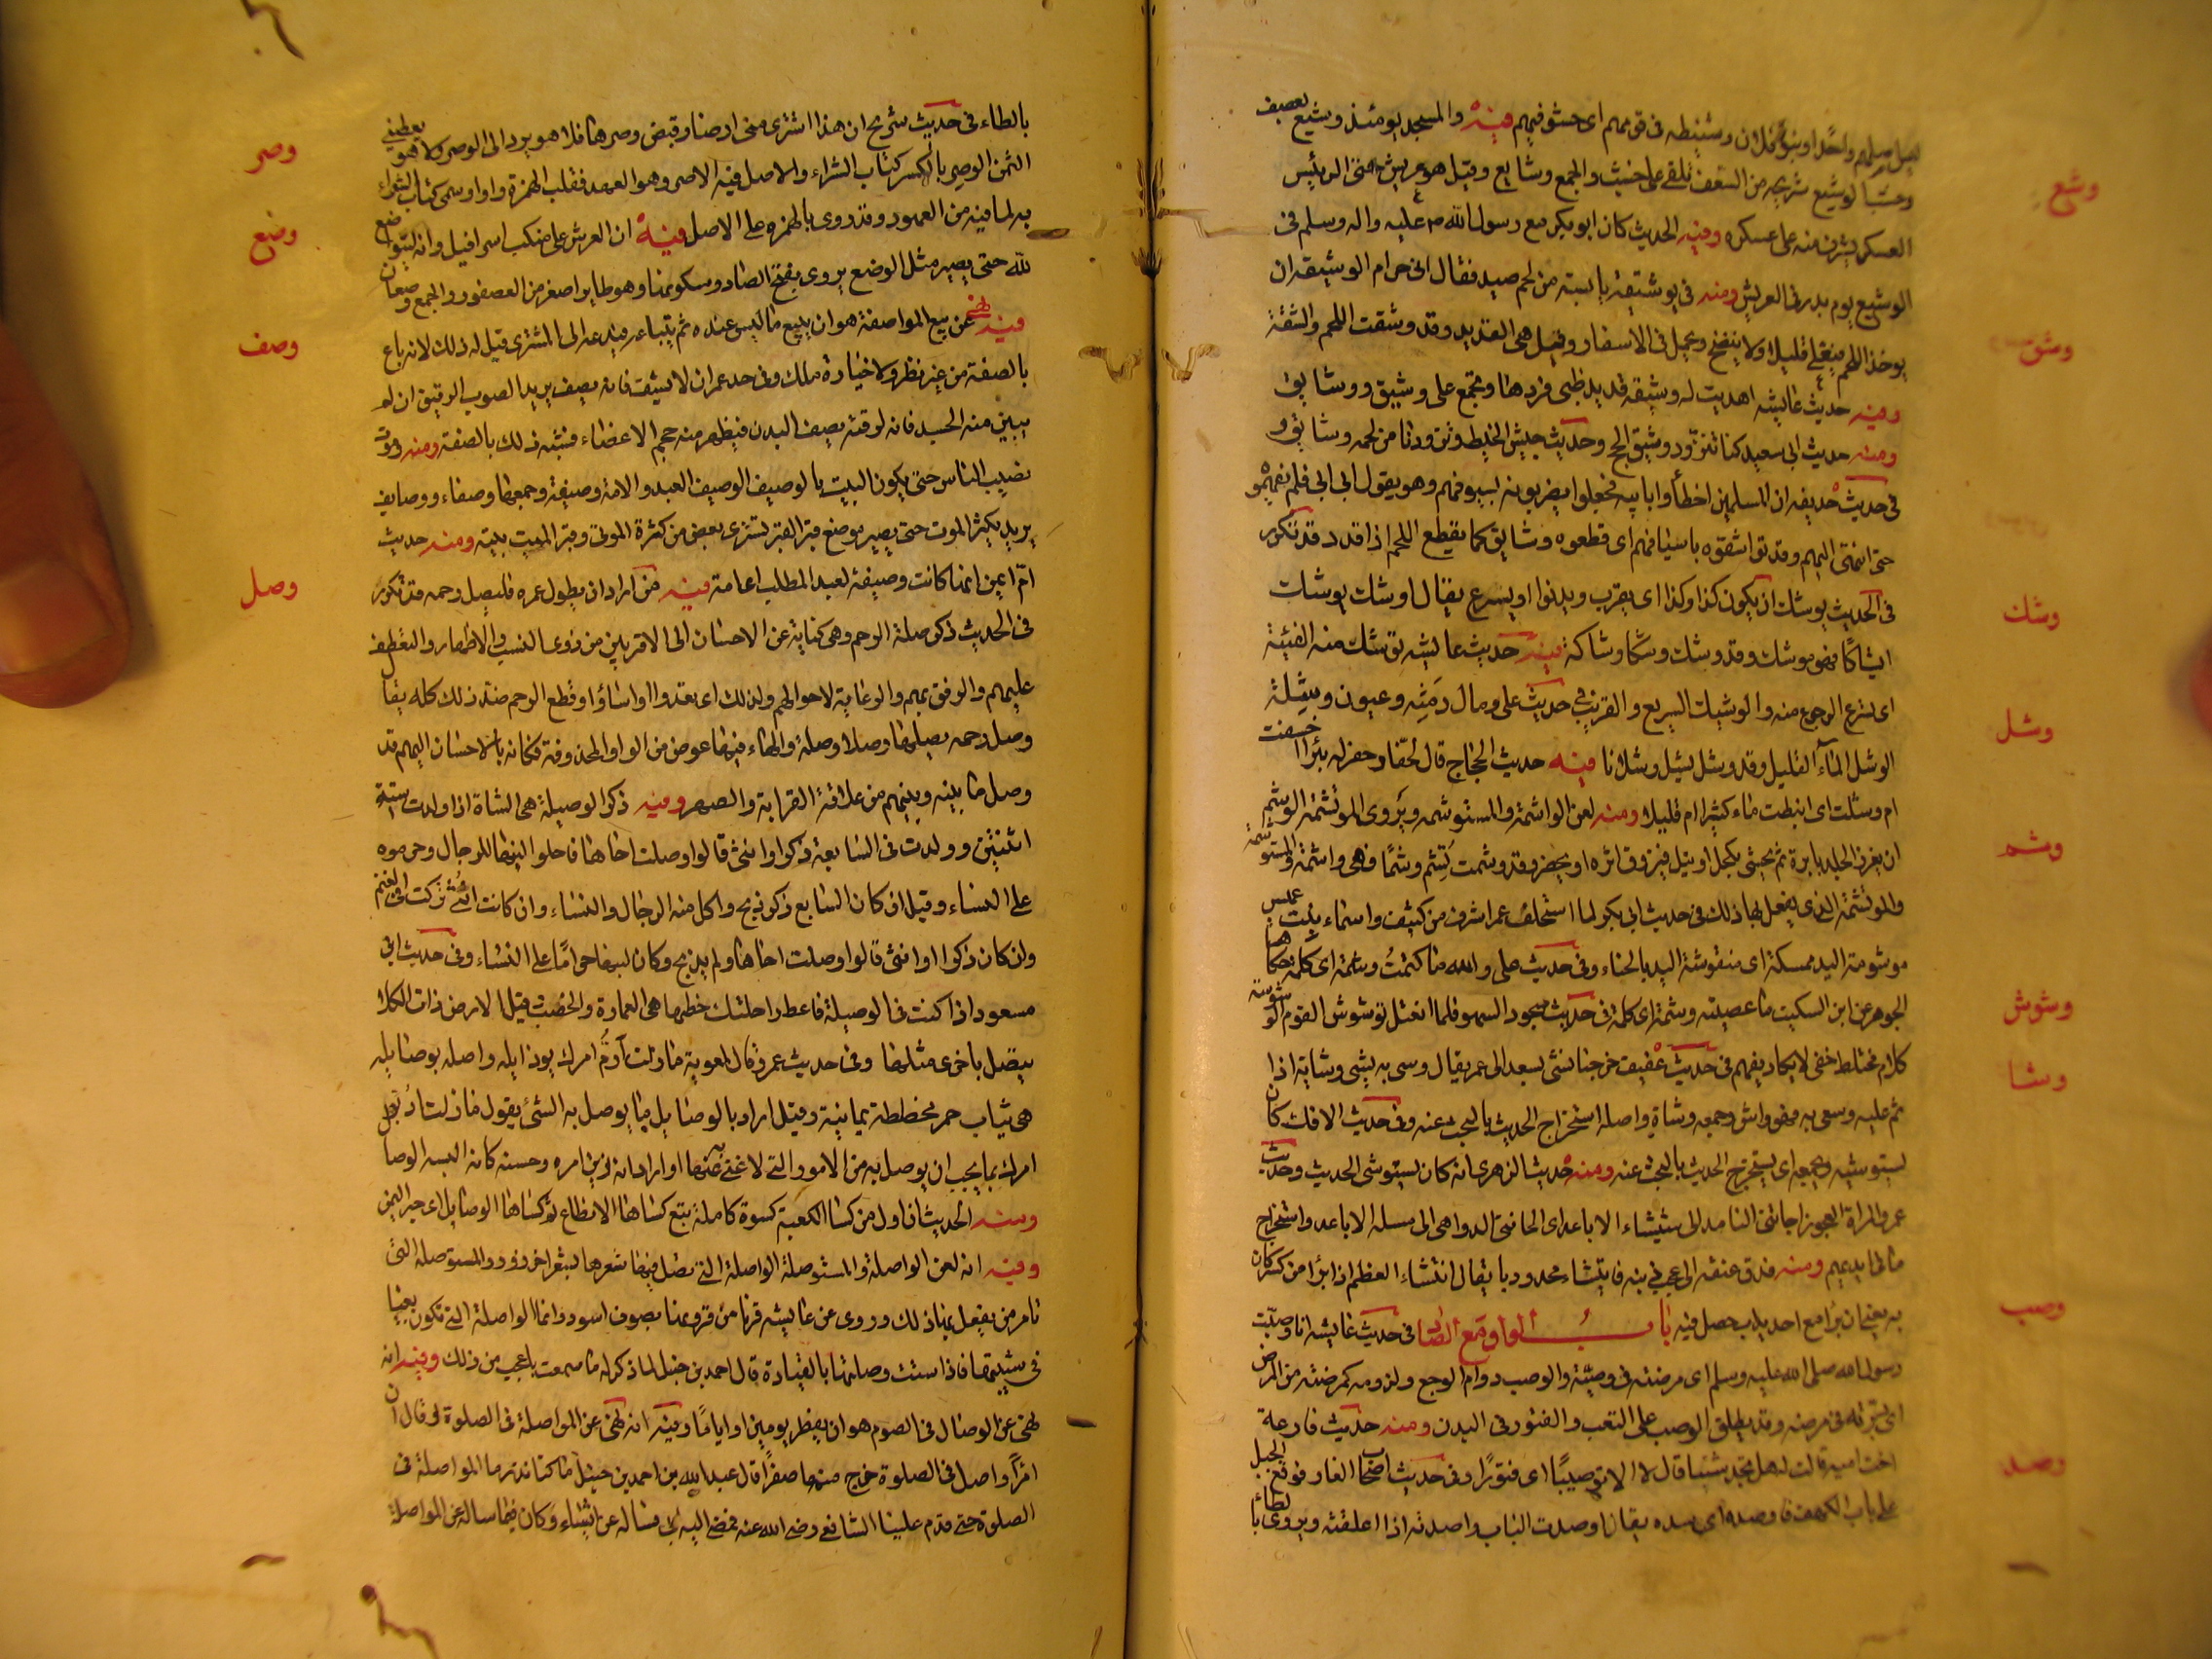 وشع
فيهم اى حشو فيهم فيه والمسجد يومئذ وشيع بعصيف
وخشب الوشيع شريجه من السعف تلقى على خشب والجمع وشايع وقيل هو عريش يبنى لرئيس
العسكر يشرف منه على عسكره ومنه الحديث كان ابو بكر مع رسول الله عليه واله وسلم فى
الوشيع يوم بدر فى العريش ومنه فى بوشيقة يابسة من لحم صيد فقال انى حرام الوشيقة ان
وشق
يوخذ اللحم فيغلى قليلا ولا ينضج ويحمل فى الاسفار وقيل هى القديد وقد وشقت اللحم واتشقته
ومنه حديث عايشه اهديت له وشيقه قديد ظبى فردها ويجمع على وشيق ووشايق
ومنه حديث ابى سعيد كنا نتزود وشيق الحج وحديث جيش الخبط وتزودنا من لحمه وشايق
فى حديث حذيفه ان المسلمين اخطأوا بابيه فجعلوا يضربونه بسيوفهم وهو يقول ابى ابى فلم يفهموه
حتى انتهى اليهم وقد تواشقوه باسيافهم اى قطعوه وشايق كما يقطع اللحم اذا قدد قد تكرر
وشك
فى الحديث يوشك ان يكون كذا وكذا اى يقرب ويدنوا او يسرع يقال اوشك يوشك
ايشاكا فهو موشك وقد وشك وشكا وشاكة فيه حديث عايشه توشك منه الفيئة
اى تسرع الرجوع منه والوشيك السريع والقريب فى حديث على ومال دمثه وعيون وشلة
وشل
الوشل المآء القليل وقد وشل يشل وشلانا فيه حديث الحجاج قال لحفار حفر له بئرا اخسفت
ام وشلت اى انبطت ماء كثيرا ام قليلا ومنه لعن الواشمة والمستوشمه ويروى الموتشمة الوشم
وشم
ان يغرز الجلد بابرة ثم يحشى بكحل او نيل فيزرق اثره او يخضر وقد وشمت تشم وشما فهى واشمة والمستوشمة
والموتشمة التى يفعل بها ذلك فى حديث ابى بكر لما استخلف عمر اشرف من كنيف واسماء بنت عميس
موشومة اليد ممسكة اى منقوشة اليد بالحناء وفى حديث على والله ما كتمت وشمة اى كلمة حكاها
الجوهرى عن ابن السكيت ما عصيته وشمة اى كلمة فى حديث سجود السهو فلما انفتل توشوش القوم الوشوشة
وشوش
كلام مختلط خفى لا يكاد يفهم فى حديث عفيف خرجنا نشى بسعد الى عمر يقال وشى به يشى وشاية اذا
وشا
نم عليه وسعى به فهو واش وجمعه وشاة واصله استخراج الحديث بالبحث عنه وفى حديث الافك كان
يستوشيه ويجمعه اى يستخرج الحديث بالبحث عنه ومنه حديث الزهرى انه كان يستوشى الحديث وحديث
عمر والمراة العجوز اجاءتنى النآمد الى استيشاء الاباعد اى الجاتنى الدواهى الى مسئلة الاباعد واستخراج
ما فى ايديهم ومنه فدق عنقه الى عجب ذنبه فايتشاء محدودبا يقال ايتشاء العظم اذا برا من كسر كان
به يعنى انه برا مع احديداب حصل فيه باب الواو مع الصاد فى حديث عايشه انا وصبت
وصب
رسول الله صلى الله عليه وسلم اى مرضته فى وصبه والوصب دوام الوجع ولزومه كمرضته من المرض
اى دبرته فى مرضه وقد يطلق الوصب على التعب والفتور فى البدن ومنه حديث فارعة
اخت امية قالت له هل تجد شيئا قال لا الا توصيبا اى فتورا وفى حديث اصحاب الغار فوقع الجبل
وصد
على باب الكهف فاوصده اى سده يقال اوصدت الباب واصدته اذا اغلقته ويروى
بالطاء فى حديث شريح ان هذا اشترى منى ارضا وقبض وصرها فلا هو يرد الى الوصر ولا هو يعطينى
وصر
الثمن الوصر بالكسر كتاب الشراء والاصل فيه الاصر وهو العهد فقلب الهمزة واوا وسمى كتاب الشراء
به لما فيه من العهود وقد روى بالهمزه على الاصل فيه ان العرش على منكب اسرافيل وانه ليتواضع
وضع
لله حتى يصير مثل الوضع يروى بفتح الصاد وسكونها وهو طاير اصغر من العصفور والجمع وصعان
فيه نهى عن بيع المواصفة هو ان يبيع ما ليس عنده ثم يبتاعه فيدفعه الى المشترى قيل له ذلك لانه باع
وصف
بالصفة من غير نظر ولا حيازة ملك وفى حديث عمر ان لا يشف فانه يصف يريد الثوب الرقيق ان لم
يبين منه الجسد فانه لرقته يصف البدن فيظهر منه حجم الاعضاء فشبه ذلك بالصفة ومنه وموت
يصيب الناس حتى يكون البيت بالوصيف الوصيف العبد والامة وصيفة وجمعها وصفاء ووصايف
يريد يكثر الموت حتى يصير موضع قبر العبد يشترى بعبد من كثرة الموتى وقبر الميت بيته ومنه حديث
ام ايمن انها كانت وصيفة لعبد المطلب اى امة فيه من اراد ان يطول عمره فليصل رحمه قد تكرر
وصل
فى الحديث ذكر صلة الرحم وهى كناية عن الاحسان الى الاقربين من ذوى النسب والاصهار والتعطف
عليهم والرفق بهم والرعاية لاحوالهم ولذلك اى بعدوا او اساؤا وقطع الرحم ضد ذلك كله يقا
وصل رحمه يصلها وصلا وصلة والهاء فيها عوض من الواو المحذوفة فكانه بالاحسان اليهم قد
وصل ما بينه وبينهم من علاقة القرابة والصهر ومنه ذكر الوصيلة هى الشاة اذا ولدت ستة
اثنتين وولدت فى السابعة ذكرا وانثى قالوا وصلت اخاها فاحلوا لبنها للرجال وحرموه
على النساء وقيل ان كان السابع ذكر ذبح واكل منه الرجال والنساء وان كانت انثى تركت فى الغنم
وان كان ذكرا او انثى قالوا وصلت اخاها ولم يذبح وكان لبنها حراما على النساء وفى حديث ابن
مسعود اذا كنت فى الوصيلة فاعط راحلتك حظها هى العمارة والخصب وقيل الارض ذات الكلاء
يتصل باخرى مثلها وفى حديث عمرو قال لمعوية ما زلت ارم امرك بوذايله واصله بوصايله
هى ثياب حمر مخططة يمانية وقيل اراد بالوصايل ما يوصل به الشئ يقول ما زلت ادبر
امرك بما يجب ان يوصل به من الامور التى لا غنى عنها او اراد انه زين امره وحسنه كانه البسه الوصا
ومنه الحديث ان اول من كسا الكعبة كسوة كاملة تبع كساها الانطاع ثم كساها الوصايل اى حبر اليمن
وفيه انه لعن الواصلة والمستوصلة الواصلة التى تصل شعرها بشعر اخر زور والمستوصلة التى
تامر من يفعل بها ذلك وروى عن عايشه قرنا من قرونها بصوف اسود وانما الواصلة التى تكون بغيا
فى شبيبتها فاذا اسنت وصلتها بالقيادة قال احمد بن حنبل لما ذكر له ما سمعت باعجب من ذلك وفيه انه
نهى عن الوصال فى الصوم هو ان لا يفطر يومين او اياما وفيه انه نهى عن المواصلة فى الصلوة وقال ان
امرأ واصل فى الصلوة خرج منها صفرا قال عبد الله بن احمد بن حنبل ما كنا ندرى ما المواصلة فى
الصلوة حتى قدم علينا الشافعى رضى الله عنه فمضى اليه ابى فساله عن اشياء وكان فيما ساله عن المواصلة